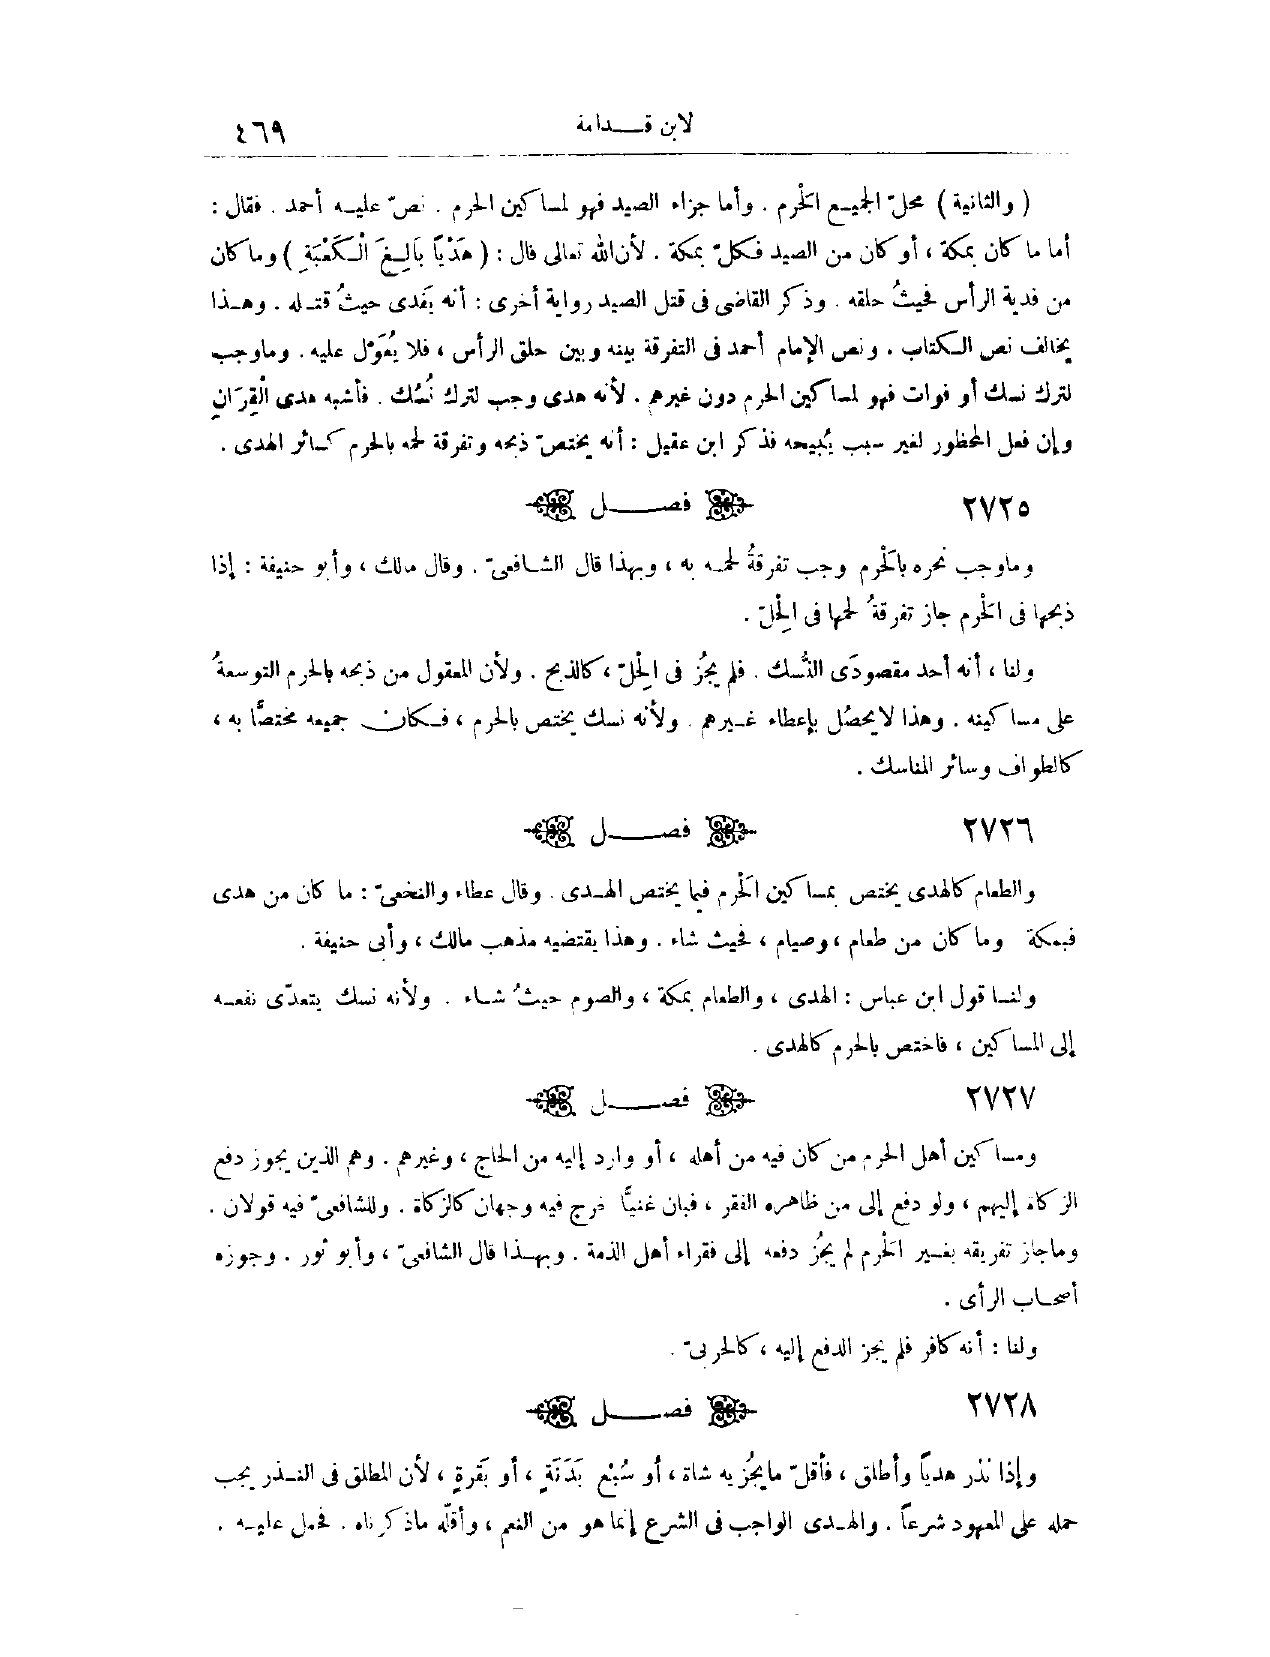 لابن قدامة
٤٦٩
( والثانية ) محلّ الجميع الحَرم . وأما جزاء الصيد فهو لمساكين الحرم . نصّ عليه أحمد . فقال :
أما ما كان بمكة ، أو كان من الصيد فكلّ بمكة . لأن الله تعالى قال : ( هَدْيًا بَالِغَ الْكَعْبَةِ ) وما كان
من فدية الرأس فحيثُ حلقه . وذكر القاضى فى قتل الصيد رواية أخرى : أنه يَفدى حيثُ قتله . وهذا
يخالف نص الكتاب . ونص الإمام أحمد فى التفرقة بينه وبين حلق الرأس ، فلا يُعَوّل عليه . وماوجب
لترك نسك أو فوات فهو لمساكين الحرم دون غيرهم . لأنه هدى وجب لترك نُسُك . فأشبه هدى الْقِرَانِ
وإن فعل المحظور لغير سبب يُبيحه فذكر ابن عقيل : أنه يختصّ ذبحه وتفرقة لحمه بالحرم كسائر الهدى .
٢٧٢٥ فصل
وماوجب نحره بالحَرم وجب تفرقةُ لحمه به ، وبهذا قال الشافعىّ . وقال مالك ، وأبو حنيفة : إذا
ذبحها فى الحَرم جاز تفرقةُ لحمها فى الحِلّ .
ولنا ، أنه أحد مقصودَى النُّسك . فلم يجُز فى الحِلّ ، كالذبح . ولأن المعقول من ذبحه بالحرم التوسعةُ
على مساكينه . وهذا لايحصُل بإعطاء غيرهم . ولأنه نسك يختص بالحرم ، فكان جميعه مختصًّا به ،
كالطواف وسائر المناسك .
٢٧٢٦ فصل
والطعام كالهدى يختص بمساكين الحَرم فيما يختص الهدى . وقال عطاء والنخعىّ : ما كان من هدى
فبمكة وما كان من طعام ، وصيام ، فحيث شاء . وهذا يقتضيه مذهب مالك ، وأبى حنيفة .
ولنا قول ابن عباس : الهدى ، والطعام بمكة ، والصوم حيثُ شاء . ولأنه نسك يتعدّى نفعه
إلى المساكين ، فاختص بالحرم كالهدى .
٢٧٢٧ فصل
ومساكين أهل الحرم من كان فيه من أهله ، أو وارد إليه من الحاج ، وغيرهم . وهم الذين يجوز دفع
الزكاة إليهم ، ولو دفع إلى من ظاهره الفقر ، فبان غنيًّا خرج فيه وجهان كالزكاة . وللشافعىّ فيه قولان .
وماجاز تفريقه بغير الحَرم لم يجُز دفعه إلى فقراء أهل الذمة . وبهذا قال الشافعىّ ، وأبو ثور . وجوزه
أصحاب الرأى .
ولنا : أنه كافر فلم يجز الدفع إليه ، كالحربىّ .
٢٧٢٨ فصل
وإذا نذر هدياً وأطلق ، فأقلّ مايجُزيه شاة ، أو سُبْع بَدَنَةٍ ، أو بَقرةٍ ، لأن المطلق فى النذر يجب
حمله على المعهود شرعاً . والهدى الواجب فى الشرع إنما هو من النعم ، وأقلّه ماذكرناه . فحمل عليه .